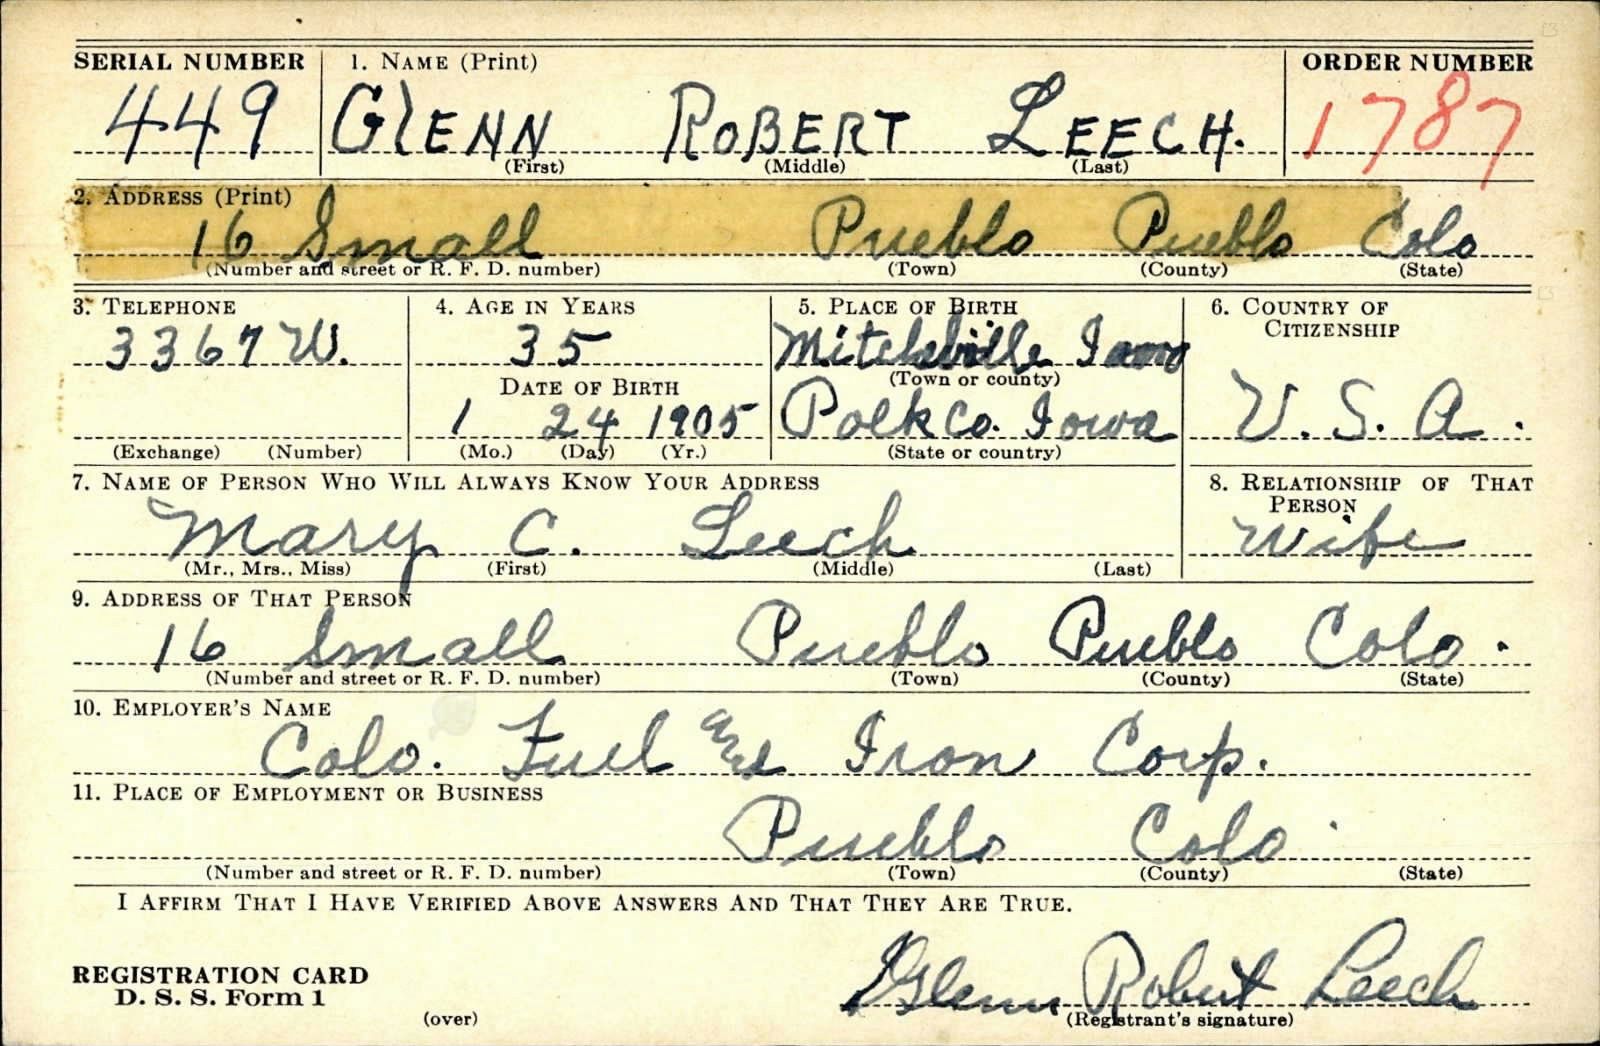 SERIAL NUMBER 1. NAME (Print) ORDER NUMBER
449 GLENN ROBERT LEECH. 1787
(First) (Middle) (Last)
2. ADDRESS (Print)
16 Small Pueblo Pueblo Colo
(Number and street or R. F. D. number) (Town) (County) (State)
3. TELEPHONE 4. AGE IN YEARS 5. PLACE OF BIRTH 6. COUNTRY OF
CITIZENSHIP
3367 W. 35 Mitchellville
(Town or county)
DATE OF BIRTH
1 24 1905 Polk Co. Iowa U. S. A.
(Exchange) (Number) (Mo.) (Day) (Yr.) (State or country)
7. NAME OF PERSON WHO WILL ALWAYS KNOW YOUR ADDRESS 8. RELATIONSHIP OF THAT
PERSON
Mary C. Leech Wife
(Mr., Mrs., Miss) (First) (Middle) (Last)
9. ADDRESS OF THAT PERSON
16 Small Pueblo Pueblo Colo.
(Number and street or R. F. D. number) (Town) (County) (State)
10. EMPLOYER'S NAME
Colo. Fuel and Iron Corp.
11. PLACE OF EMPLOYMENT OR BUSINESS
Pueblo Colo.
(Number and street or R. F. D. number) (Town) (County) (State)
I AFFIRM THAT I HAVE VERIFIED ABOVE ANSWERS AND THAT THEY ARE TRUE.
REGISTRATION CARD
D. S. S. Form 1
Glenn Robert Leech
(over) (Registrant's signature)